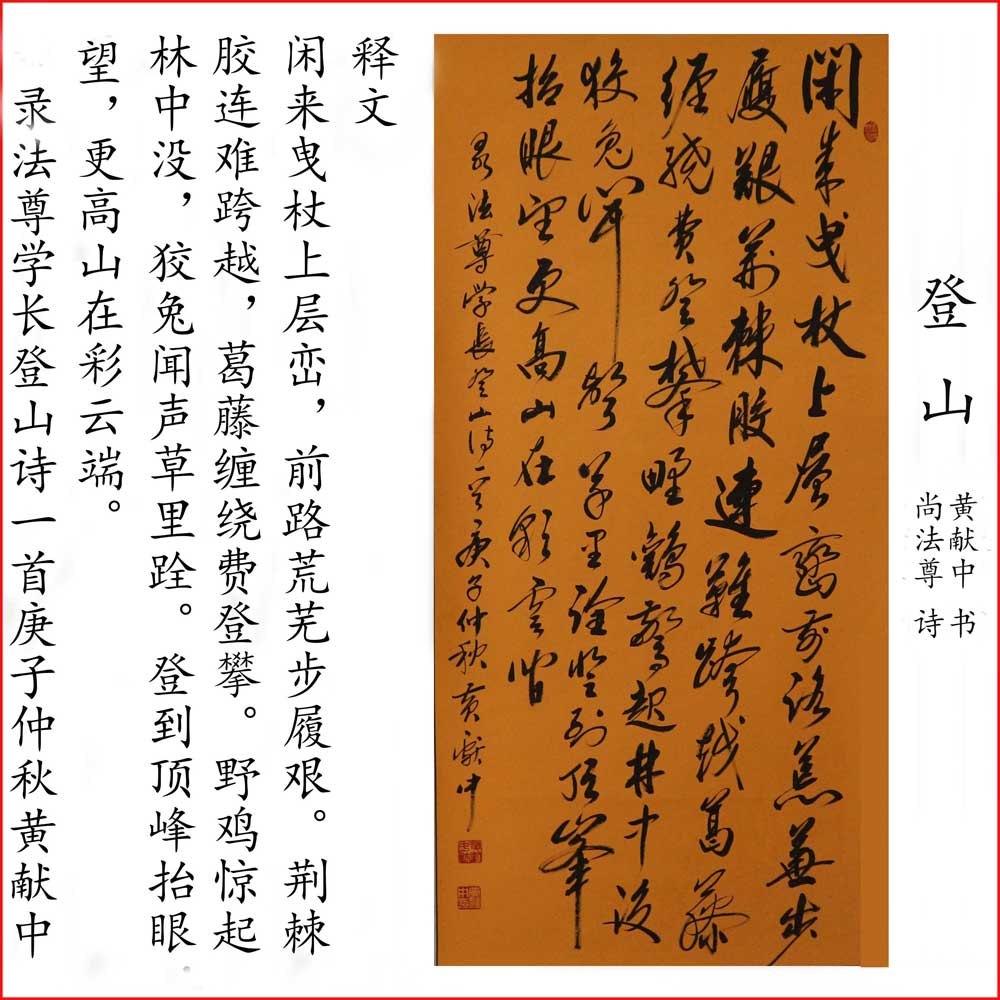 登山
黄献中 书
尚法尊 诗
閑来曳杖上層巒前路荒蕪步
履艱荆棘胶連難跨越葛藤
纏繞費登攀野鷄驚起林中没
狡兔聞聲草里跧登到頂峯
抬眼望更高山在彩雲端
录法尊学長登山诗一首庚子仲秋黄献中
释文
闲来曳杖上层峦，前路荒芜步履艰。荆棘
胶连难跨越，葛藤缠绕费登攀。野鸡惊起
林中没，狡兔闻声草里跧。登到顶峰抬眼
望，更高山在彩云端。
录法尊学长登山诗一首庚子仲秋黄献中